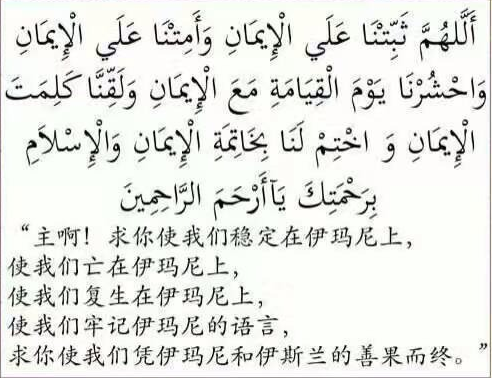 أَللهُمَّ ثَبِّتْنَا عَلَي الْإِيمَانِ وَأَمِتْنَا عَلَي الْإِيمَانِ
وَاحْشُرْنَا يَوْمَ الْقِيَامَةِ مَعَ الْإِيمَانِ وَلَقِّنَّا كَلِمَتَ
الْإِيمَانِ وَ اخْتِمْ لَنَا بِخَاتِمَةِ الْإِيمَانِ وَالْإِسْلاَمِ
بِرَحْمَتِكَ يَاۤأَرْحَمَ الرَّاحِمِينَ
“主啊！求你使我们稳定在伊玛尼上，
使我们亡在伊玛尼上，
使我们复生在伊玛尼上，
使我们牢记伊玛尼的语言，
求你使我们凭伊玛尼和伊斯兰的善果而终。”